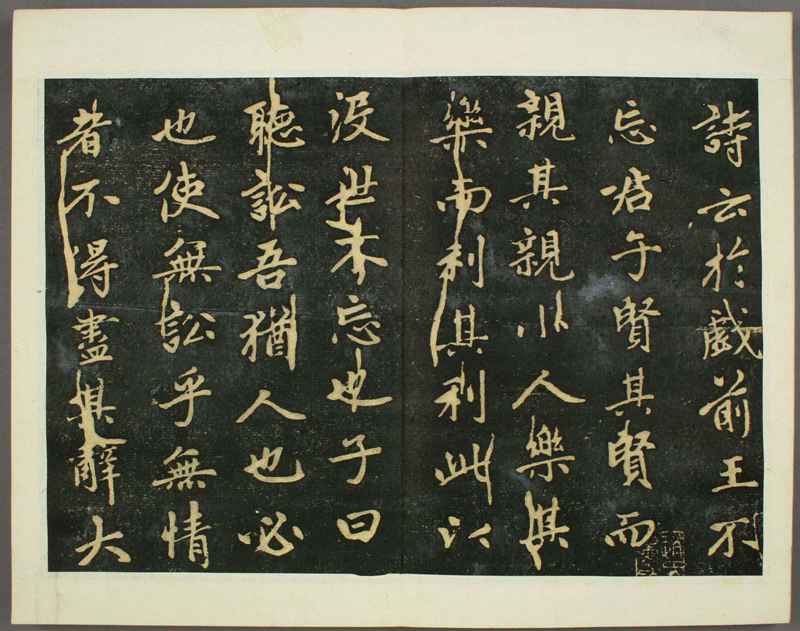 詩云於戲前王不
忘君子賢其賢而
親其親小人樂其
樂而利其利此以
没世不忘也子曰
聽訟吾猶人也必
也使無訟乎無情
者不得盡其辭大